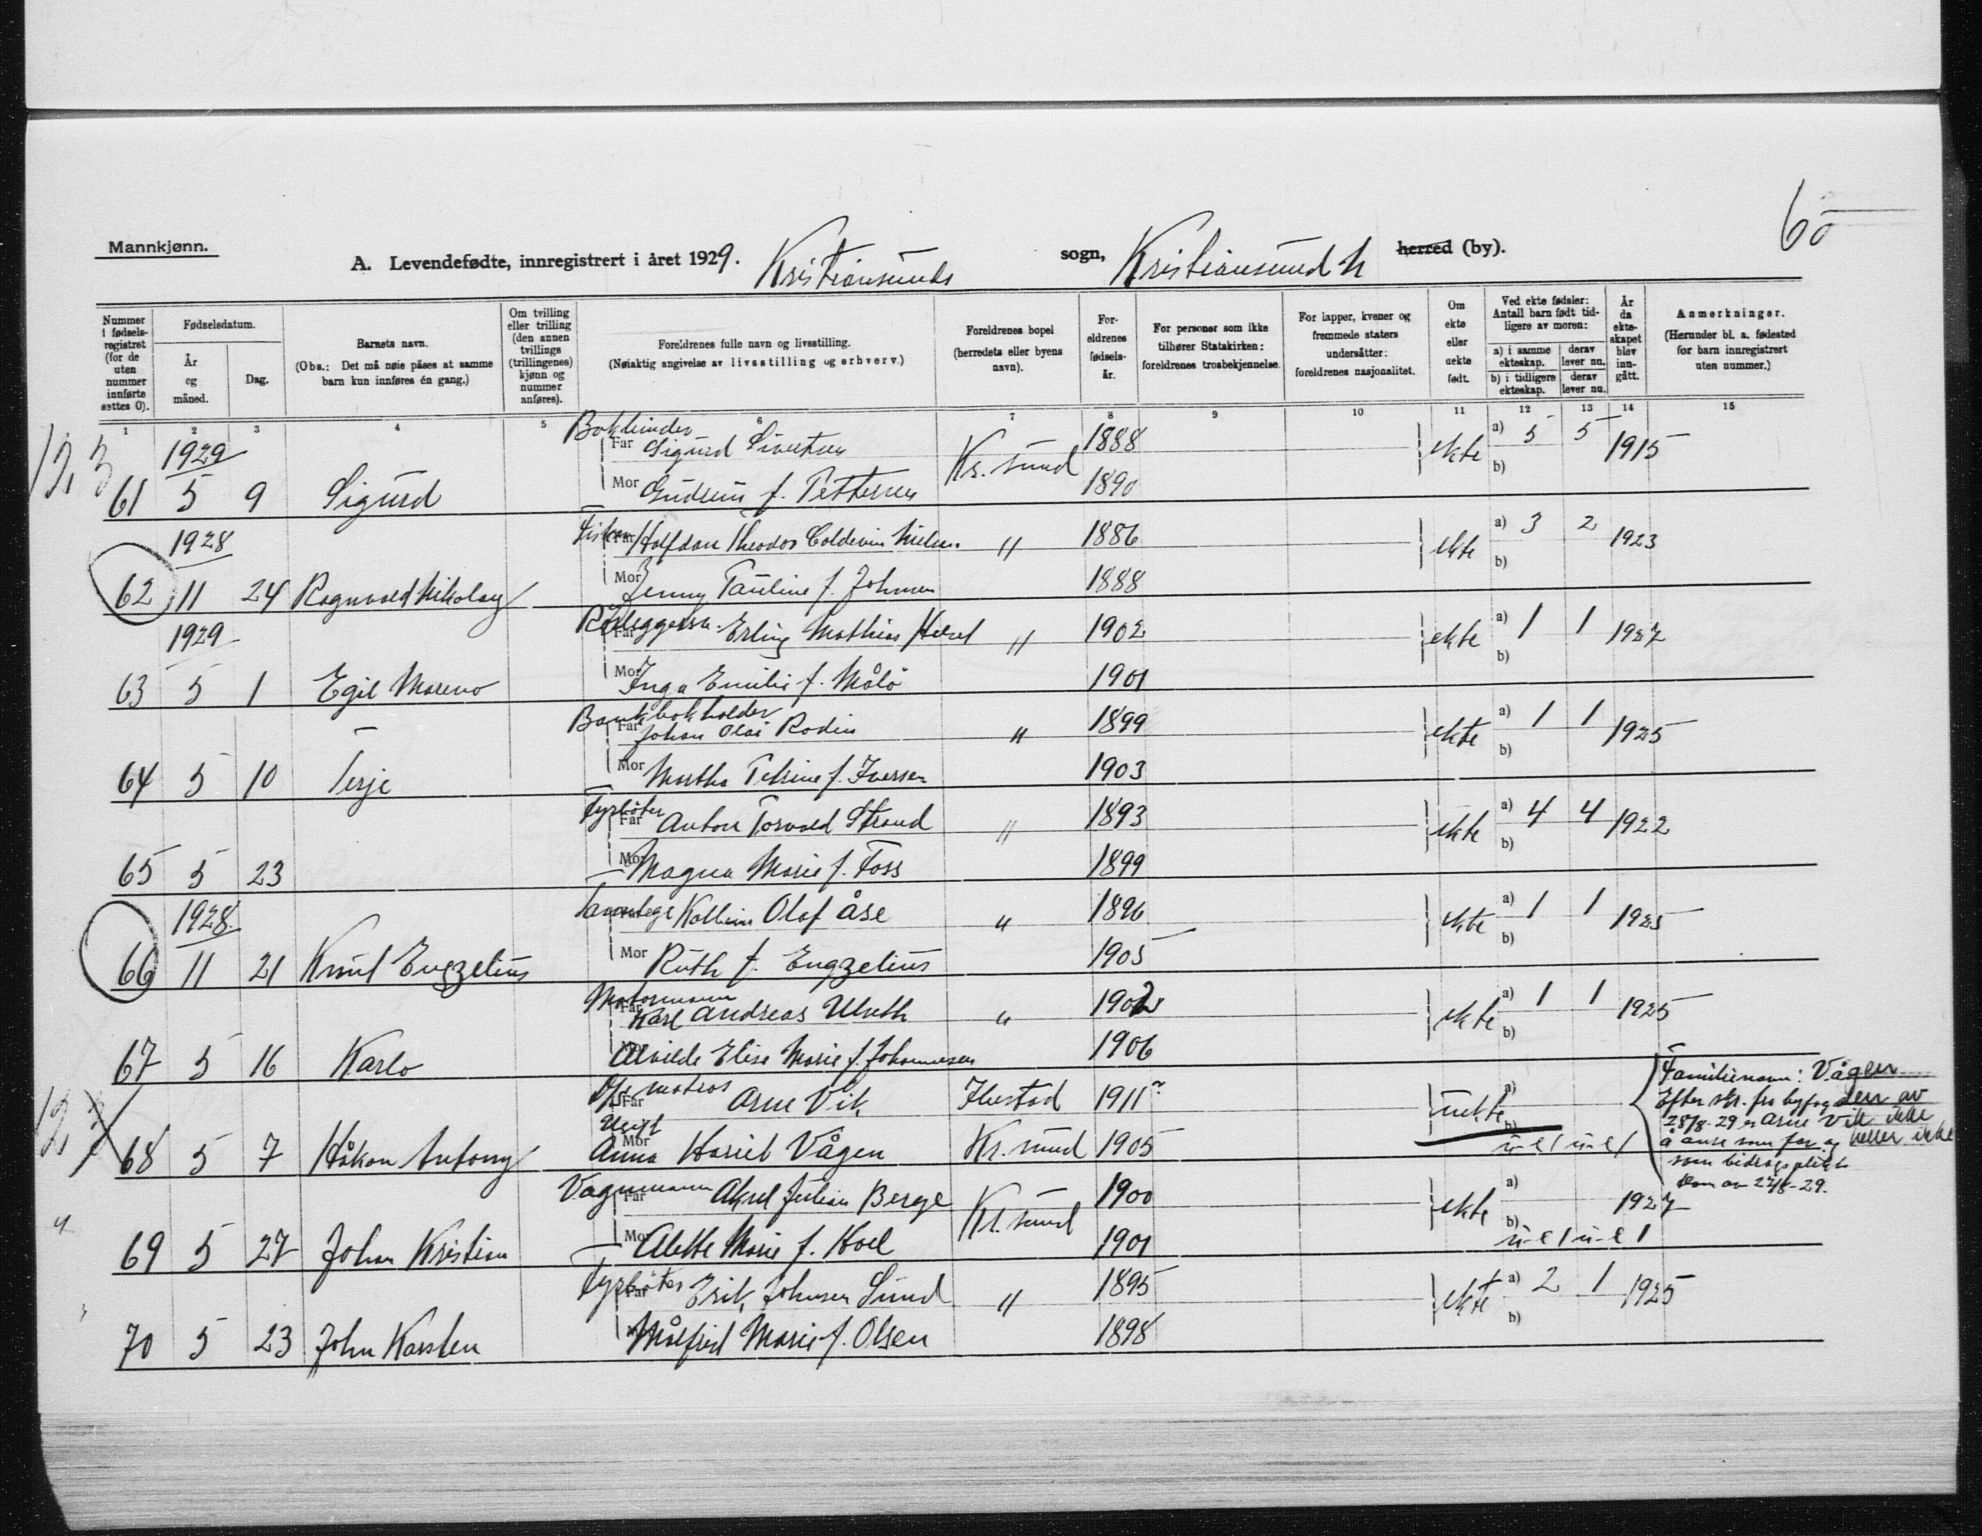 60
Mannkjønn.
A. Levendefødte, innregistrert i året 1929. Kristiansunds sogn, Kristiansund N herred (by).
Nummer i fødsels-registret (for de uten nummer innførte settes 0).
Fødselsdatum.
År og måned.
Dag.
Barnets navn.
(Obs.: Det må nøie påses at samme barn kun innføres én gang.)
Om tvilling eller trilling (den annen tvillings (trillingenes) kjønn og nummer anføres).
Foreldrenes fulle navn og livsstilling.
(Nøiaktig angivelse av livsstilling og erhverv.)
Foreldrenes bopel (herredets eller byens navn).
For-eldrenes fødsels-år.
For personer som ikke tilhører Statskirken: foreldrenes trosbekjennelse.
For lapper, kvener og fremmede staters undersåtter: foreldrenes nasjonalitet.
Om ekte eller uekte født.
Ved ekte fødsler: Antall barn født tid-ligere av moren:
a) i samme ekteskap. derav lever nu.
b) i tidligere ekteskap. derav lever nu.
År da ekte-skapet blev inn-gått.
Anmerkninger.
(Herunder bl. a. fødested for barn innregistrert uten nummer.)
1 2 3 4 5 6 7 8 9 10 11 12 13 14 15
123
1929
Bokbinder
Far Sigurd Sivertsen Kr. sund 1888 ekte a) 5 5 1915
b)
61 5 9 Sigurd Mor Gudrun f. Pettersen 1890
1928
Fisker Far Halfdan Theodor Coldevin Nielsen " 1886 ekte a) 3 2 1923
b)
62 11 24 Ragnvald Nikolay Mor Jenny Pauline f. Johnsen 1888
1929
Far Erling Mathias " 1902 ekte a) 1 1 1927
b)
63 5 1 Egil Mareno Mor Inga Emilie f. Målö 1901
Bankbokholder
Far Johan Olai Rodin " 1899 ekte a) 1 1 1925
b)
64 5 10 Terje Mor Martha Petrine f. Iversen 1903
Fyrböter
Far Anton Torvald Strand " 1893 ekte a) 4 4 1922
b)
65 5 23 Mor Magna Marie f. Foss 1899
1928
Tannlege Far Olaf Åse " 1896 ekte a) 1 1 1925
b)
66 11 21 Knut Engzelius Mor Ruth f. Engzelius 1905
Motormann
Far Karl Andreas Ulseth " 1902 ekte a) 1 1 1925
b)
67 5 16 Karlo Mor Alvilde Elise Marie f. Johannesen 1906
123
matros
Far Arne Vik Ibestad 1911 uekte a)
Ugift
68 5 7 Håkon Antony Mor Anna Hariet Vågen Kr. sund 1905 b) u-e 1 u-e 1
Familienavn: Vågen
Efter skr. fra byfogden av
28/8-29 er Arne Vik ikke
å anse som far og heller ikke
som bidragspliktig
Dom av 27/8-29.
"
Vognmann Far Aksel Julian Berge Kr. sund 1900 ekte a) 1927
b) u-e 1 u-e 1
69 5 27 Johan Kristian Mor Alette Marie f. Hoel 1901
Fyrböter
Far Erik Johnsen Sund " 1895 ekte a) 2 1 1925
b)
70 5 23 John Karsten Mor Målfrid Marie f. Olsen 1898